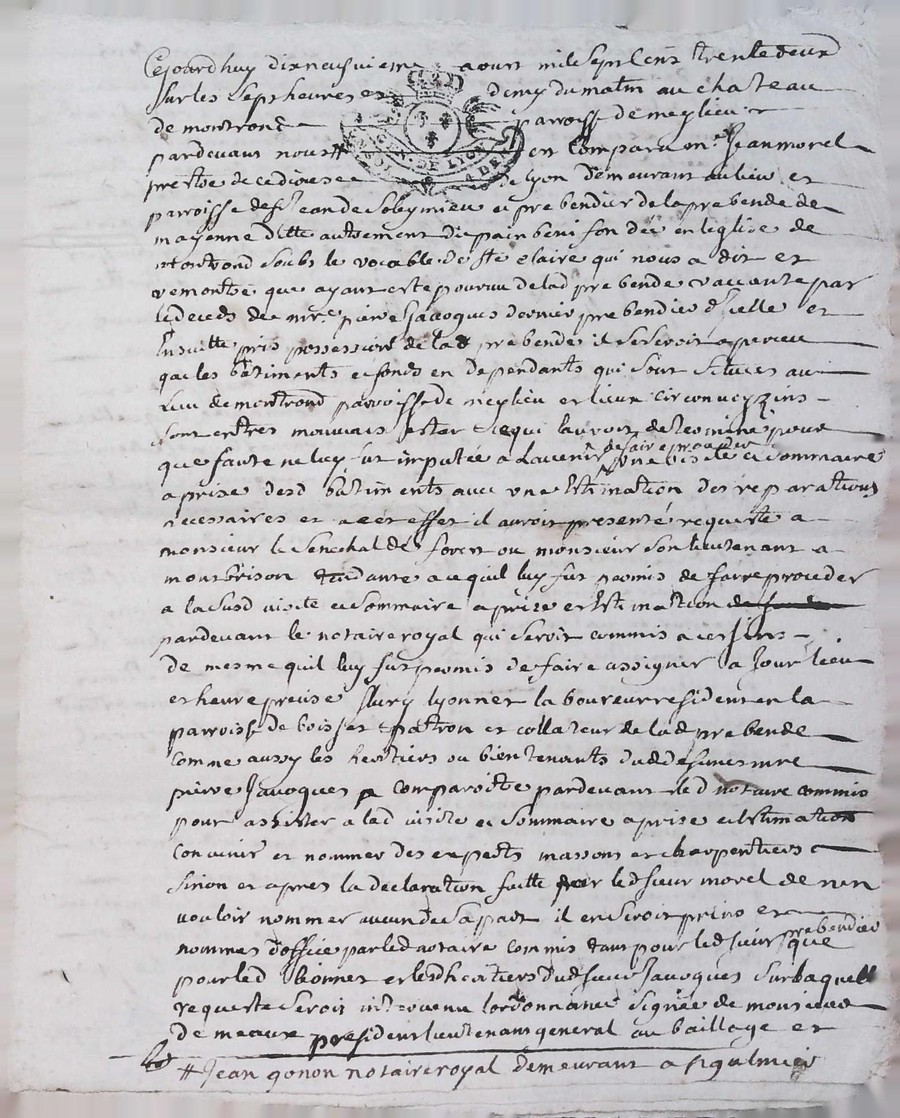 Cejourdhuy dixneufvieme aoust mil sept cens trente deux
sur les sept heures et demy du matin au chateau
de montrond parroisse de meylieu
pardevant nous # est comparu mre Jean morel
prestre de ce diocese de lyon demeurant au lieu et
parroisse de st Jean de Soleymieu et prebendier de la prebende de
mayenne ditte autrement du pain beni fondée en leglise de
montrond soubs le vocable de ste claire qui nous a dit et
remontré que ayant esté pourvu de lad prebende vaccante par
le deceds de mre pierre Javoques dernier prebendier d'icelle et
Ensuitte pris possession de lad prebende il se seroit aperceu
que les bâtiments et fonds en dependants qui sont situés au
Lieu de montrond parroisse de meylieu et lieux circonvoyzins
sont en tres mauvais estat ce qui lauroit determiné pour
que faute ne luy fut imputée a lavenir de faire proceder
a une visite et sommaire
aprise desd bâtiments avec une Estimation des reparations
necessaires et a cet effet il auroit presenté requeste a
monsieur le senechal de forest ou monsieur son lieutenant a
montbrison tendante a ce quil luy fut permis de faire proceder
a la susd visite et sommaire aprise et Estimation
pardevant le notaire royal qui seroit commis a ces fins
de mesme quil luy fut permis de faire assigner a Jour lieu
et heure precise fleury lyonnet laboureur resident en la
parroisse de boisset patron et collateur de lad prebende
comme aussy les heritiers ou bientenants dud deffunt mre
pierre Javoques a comparoitre pardevant led notaire commis
pour assister a lad visite et sommaire aprise et Estimation
convenir et nommer des experts massons et charpentiers
sinon et apres la declaration faitte par led sieur morel de nen
vouloir nommer aucun de sa part il en seroit prins et
nommés doffice par led notaire commis tant pour led sieur prebendier que
pour led lionnet et lesd heritiers dud sieur Javoques sur laquelle
requeste seroit intervenu lordonnance signée de monsieur
de meaux president lieutenant general au baillage et
# Jean gonon notaire royal demeurant a st galmier
GEN. DE LYON